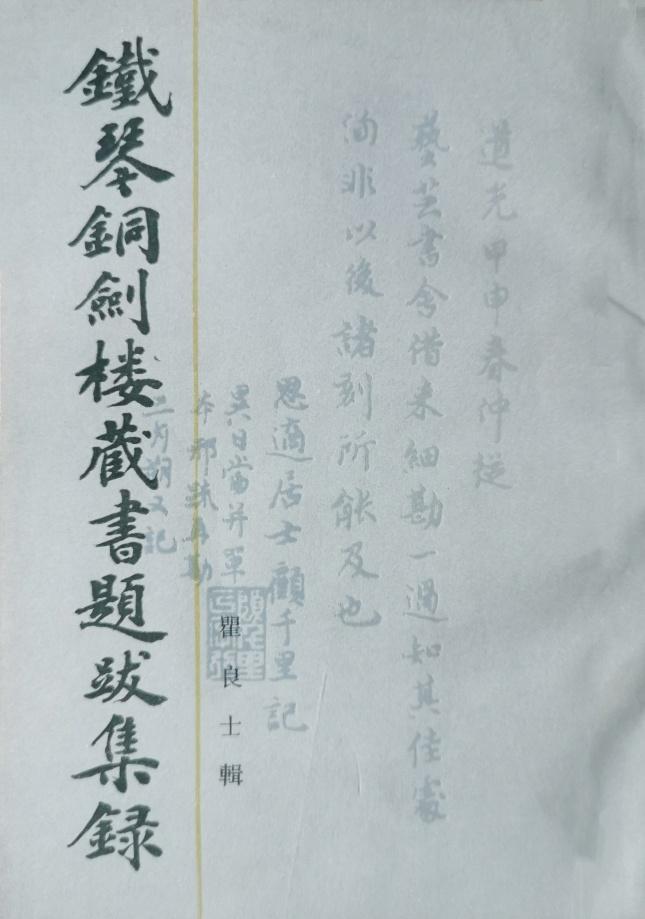 道光甲申春仲從
藝芸書舍借来細勘一過知其佳處
洵非以後諸刻所能及也
思適居士顧千里記
異日當并單
本邢疏再勘
二月朔又記
瞿良士輯
鐵琴銅劍楼藏書題跋集録